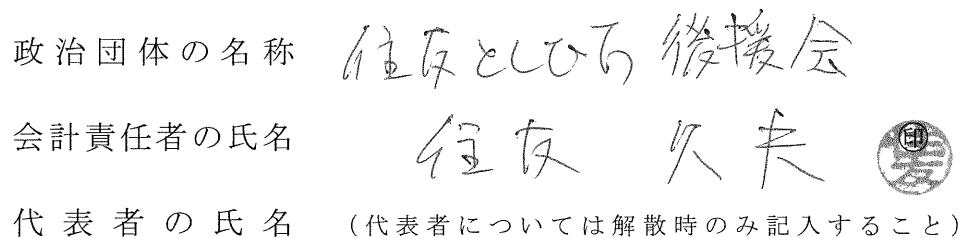 政治団体の名称 住友としひろ後援会
会計責任者の氏名 住友 久夫 印 住友
代表者の氏名 (代表者については解散時のみ記入すること)